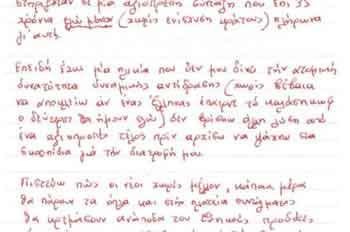 στηριζόταν σε μια αξιοπρεπή σύνταξη που επί 35
χρόνια εγώ μόνον (χωρίς ενίσχυση κράτους) πλήρωνα
γι' αυτή.
Επειδή έχω μια ηλικία που δεν μου δίνει την ατομική
δυνατότητα δυναμικής αντίδρασης (χωρίς βέβαια
να αποκλείω αν ένας Έλληνας έπαιρνε το καλάσνικωφ
ο δεύτερος θα ήμουν εγώ) δεν βρίσκω άλλη λύση από
ένα αξιοπρεπές τέλος πριν αρχίσω να ψάχνω στα
σκουπίδια για την διατροφή μου.
Πιστεύω πως οι νέοι χωρίς μέλλον, κάποια μέρα
θα πάρουν τα όπλα και στην πλατεία συντάγματος
θα κρεμάσουν ανάποδα τους εθνικούς προδότες